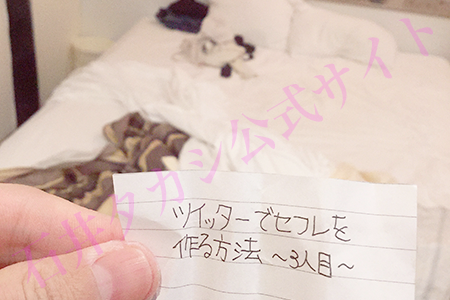 石井タカシ公式サイト
ツイッターでセフレを
作る方法 ～3人目～